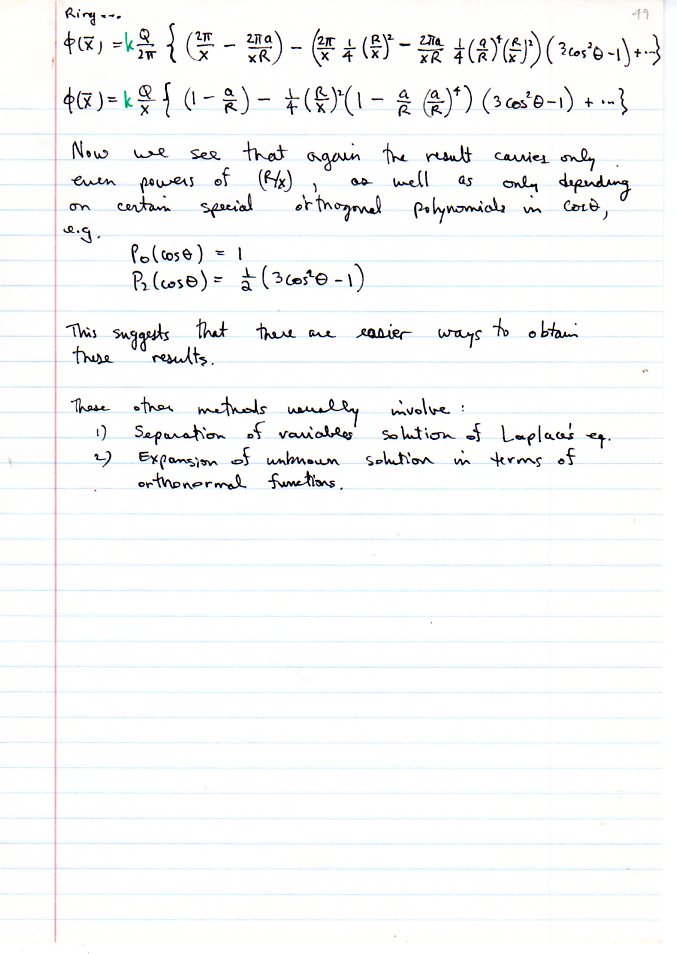 Ring...
49
ϕ(x̄) = k Q/2π { (2π/x − 2πa/xR) − (2π/x 1/4 (R/x)² − 2πa/xR 1/4 (a/R)⁴(R/x)²) (3cos²θ−1) + ...}
ϕ(x̄) = k Q/x { (1 − a/R) − 1/4 (R/x)² (1 − a/R (a/R)⁴) (3cos²θ−1) + ...}
Now we see that again the result carries only
even powers of (R/x), as well as only depending
on certain special orthogonal polynomials in cosθ,
e.g.
P₀(cosθ) = 1
P₂(cosθ) = 1/2 (3cos²θ−1)
This suggests that there are easier ways to obtain
these results.
These other methods usually involve:
1) Separation of variables solution of Laplace's eq.
2) Expansion of unknown solution in terms of
orthonormal functions.